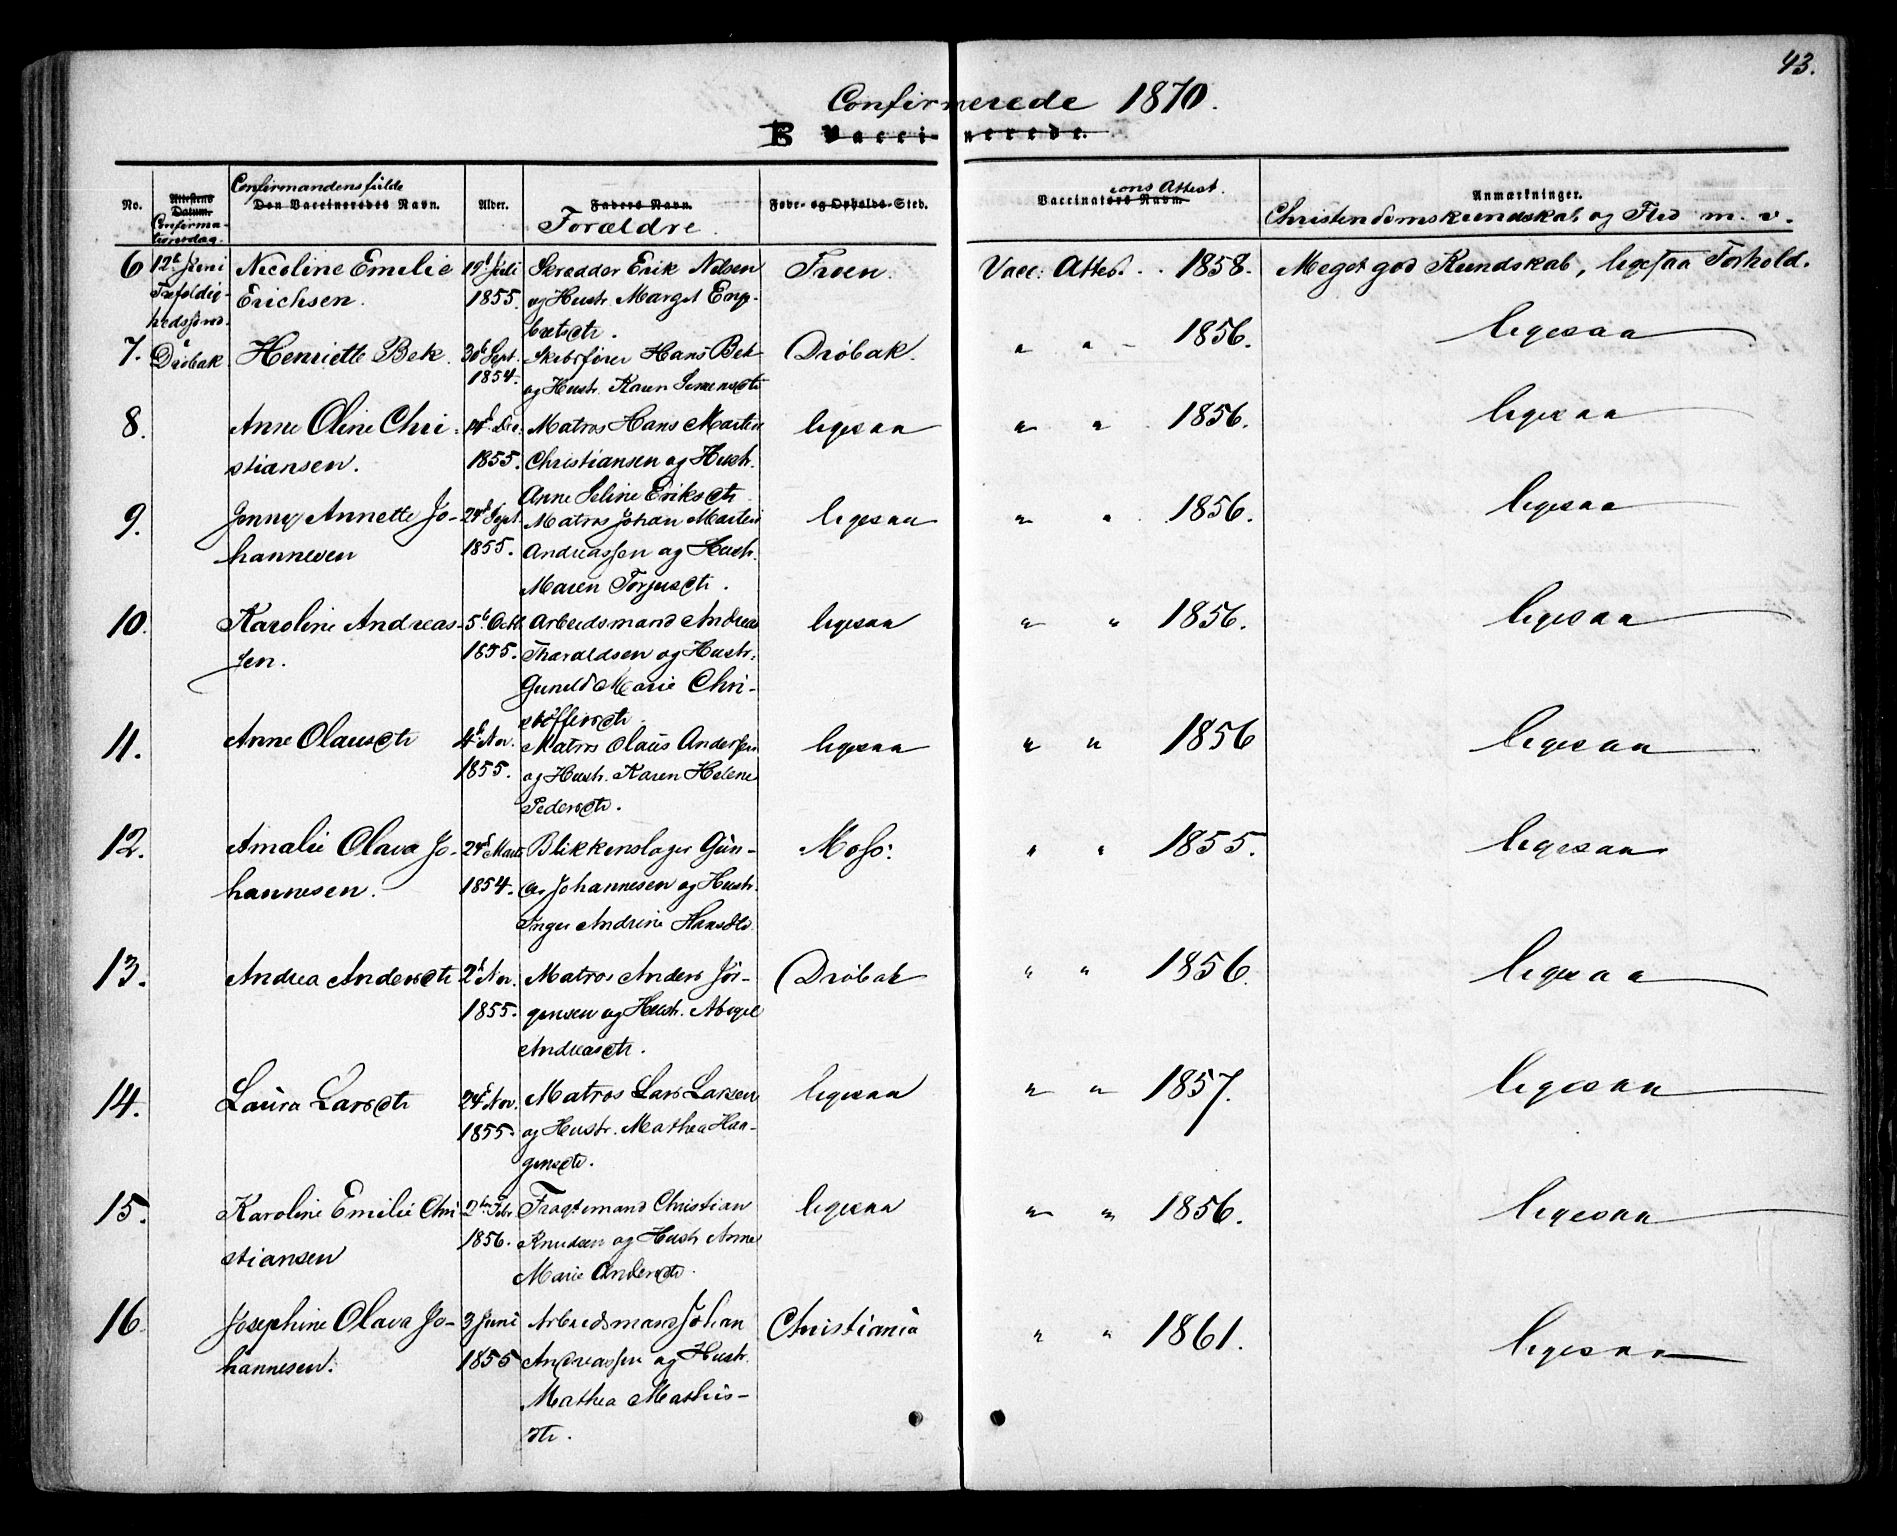 43.
Confirmerede 1870.
B Vaccinerede.
No. Attestens Datum. Confirmationsdag. Confirmandens fulde Den Vaccineredes Navn. Alder. Faders Navn. Forældre. Føde- og Opholds-Sted. Vaccinators Navn. ions Attest. Anmærkninger. Christendomskundskab og Flid m. v.
6 12te Juni Nicoline Emilie 19d Juli Skrædder Erik Nilsen Froen. Vacc: Attest. 1858. Meget god Kundskab, ligesaa Forhold.
Trefoldig- Erichsen. 1855. og Hustr. Marget Eng-
hedssønd. bretsdtr.
7. i Drøbak Henriette Bek. 30t Sept. Skibsfører Hans Bek Drøbak. " " 1856. ligesaa
1854. og Hustr. Karen Simensdtr
8. Anne Oline Chri- 14d Dec. Matros Hans Martin ligesaa " " 1856. ligesaa
stiansen. 1855. Christiansen og Hustr.
Anne Seline Eriksdtr
9. Jenny Annette Jo- 24d Sept Matros Johan Martin ligesaa " " 1856. ligesaa
hannesen 1855. Andreassen og Hustr.
Maren Torjusdtr.
10. Karoline Andreas- 5t Octb Arbeidsmand Andreas ligesaa " " 1856. ligesaa
sen. 1855. Tharaldsen og Hustr.
Gunild Marie Chri-
stoffersdtr.
11. Anne Olausdtr 4d Nov. Matros Olaus Andersen ligesaa " " 1856 ligesaa
1855. og Hustr. Karen Helene
Pedersdtr.
12. Amalie Olava Jo- 24d Marts Blikkenslager Gun- Moss. " " 1855. ligesaa
hannesen. 1854. Johannesen og Hustr.
Inger Andrine Hansdtr
13. Andrea Andersdtr 2d Nov. Matros Anders Jör- Drøbak " " 1856. ligesaa
1855. gensen og Hustr. Abegel
Andreasdtr.
14. Laura Larsdtr 24d Nov. Matros Lars Larsen ligesaa " " 1857. ligesaa
1855. og Hustr. Mathea Haa-
gensdtr.
15. Karoline Emilie Chri 2den Febr Fragtemand Christian ligesaa " " 1856. ligesaa
stiansen 1856. Knudsen og Hustr Anne
Marie Andersdtr.
16. Josephine Olava Jo- 3 Juni Arbeidsmand Johan Christiania " " 1861. ligesaa
hannesen. 1855 Andreassen og Hustr.
Mathea Mathis-
dtr.